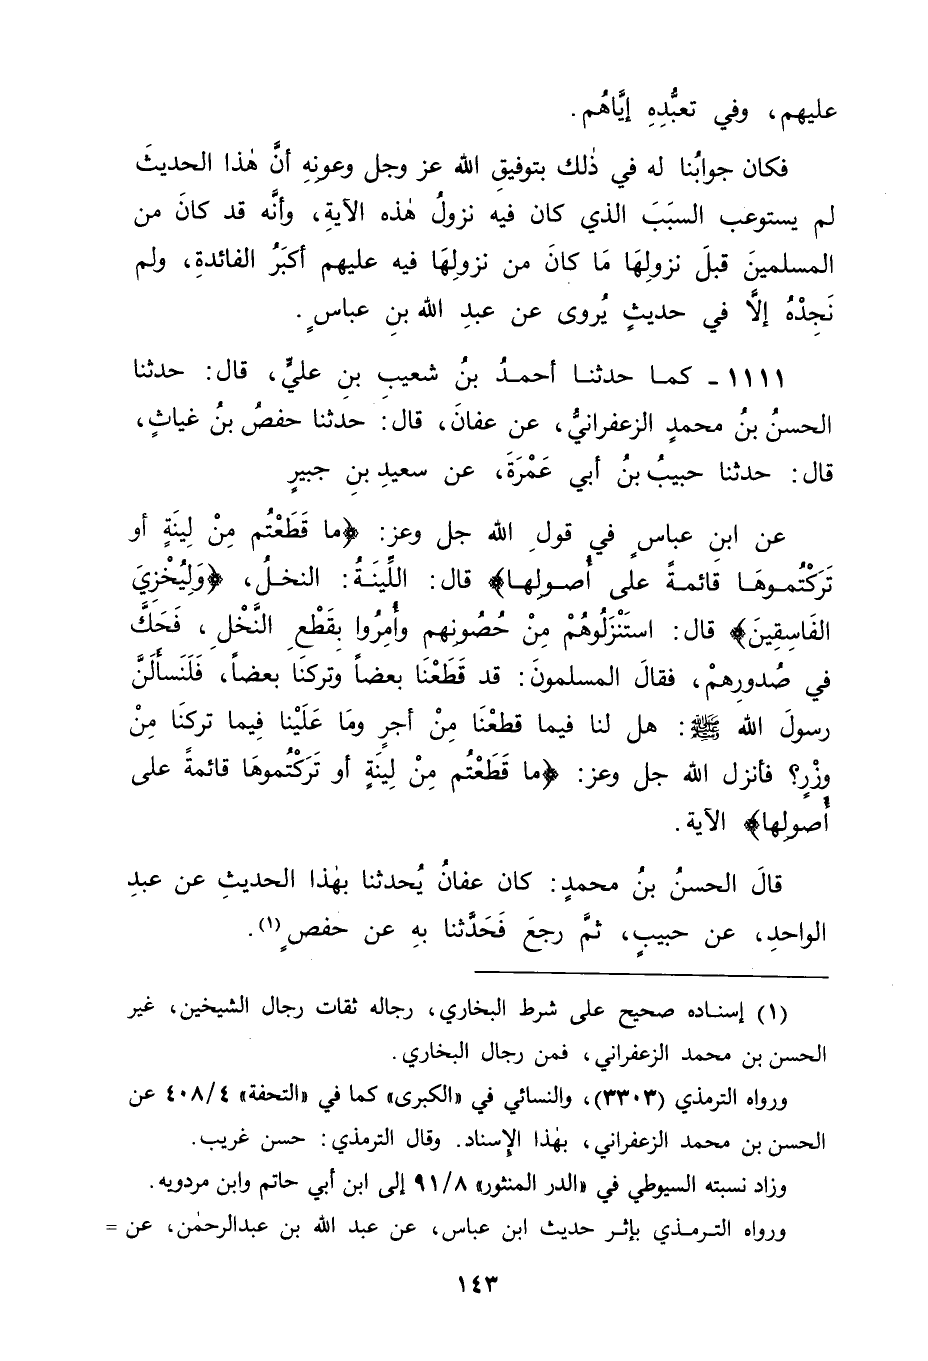 عليهم، وفي تعبُّدِهِ إيَّاهُم.
فكان جوابُنا له في ذٰلك بتوفيقِ الله عز وجل وعونِهِ أنَّ هٰذا الحديثَ
لم يستوعب السبَبَ الذي كان فيه نزولُ هٰذه الآيةِ، وأنَّه قد كانَ من
المسلمينَ قبلَ نزولِهَا مَا كانَ من نزولِهَا فيه عليهم أكبَرُ الفائدةِ، ولم
نَجِدْهُ إلَّا في حديثٍ يُروى عن عبدِ الله بنِ عباسٍ.
١١١١ ـ كما حدثنا أحمدُ بنُ شعيبِ بنِ عليٍّ، قال: حدثنا
الحسنُ بنُ محمدٍ الزعفرانيُّ، عن عفانَ، قال: حدثنا حفصُ بنُ غياثٍ،
قال: حدثنا حبيبُ بنُ أبي عَمْرَةَ، عن سعيدِ بنِ جبيرٍ
عن ابنِ عباسٍ في قولِ الله جل وعز: ﴿ما قَطَعْتُم مِنْ لِينَةٍ أو
تَرَكْتُموهَا قائمةً على أُصولِها﴾ قال: اللِّينَةُ: النخلُ، ﴿وَلِيُخْزِيَ
الفَاسِقِينَ﴾ قال: استَنْزَلُوهُمْ مِنْ حُصُونِهم وأُمِرُوا بِقَطْعِ النَّخْلِ، فَحَكَّ
في صُدورِهمْ، فقالَ المسلمونَ: قد قَطَعْنَا بعضاً وتركنَا بعضاً، فَلَنَسأَلَنَّ
رسولَ الله ﷺ: هل لنا فيما قطعْنَا مِنْ أجرٍ ومَا عَلَيْنا فِيما تركنَا مِنْ
وِزْرٍ؟ فأنزل الله جل وعز: ﴿ما قَطَعْتُم مِنْ لِينَةٍ أو تَرَكْتُموهَا قائمةً على
أُصولِها﴾ الآية.
قالَ الحسنُ بنُ محمدٍ: كان عفانُ يُحدثنا بهٰذا الحديثِ عن عبدِ
الواحدِ، عن حبيبٍ، ثمَّ رجعَ فَحَدَّثنا بهِ عن حفصٍ(١).
(١) إسناده صحيح على شرط البخاري، رجاله ثقات رجال الشيخين، غير
الحسن بن محمد الزعفراني، فمن رجال البخاري.
ورواه الترمذي (٣٣٠٣)، والنسائي في «الكبرى» كما في «التحفة» ٤٠٨/٤ عن
الحسن بن محمد الزعفراني، بهٰذا الإسناد. وقال الترمذي: حسن غريب.
وزاد نسبته السيوطي في «الدر المنثور» ٩١/٨ إلى ابن أبي حاتم وابن مردويه.
ورواه الترمذي بإثر حديث ابن عباس، عن عبد الله بن عبدالرحمٰن، عن =
١٤٣